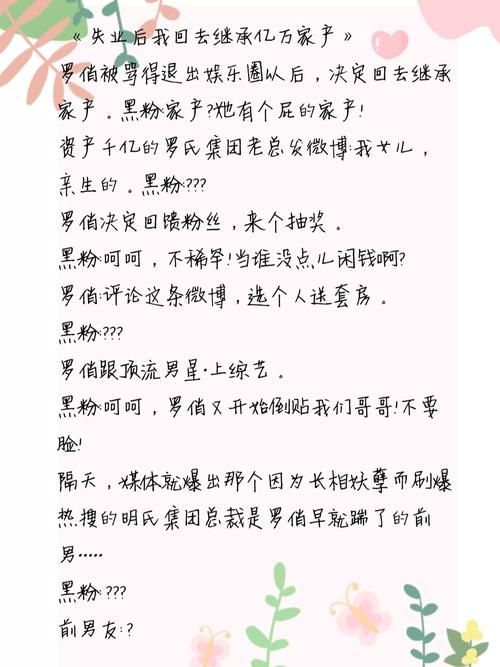 《失业后我回去继承亿万家产》
罗俏被骂得退出娱乐圈以后，决定回去继承
家产。黑粉:家产?她有个屁的家产!
资产千亿的罗氏集团老总发微博:我女儿，
亲生的。黑粉:???
罗俏决定回馈粉丝，来个抽奖。
黑粉:呵呵，不稀罕!当谁没点儿闲钱啊?
罗俏:评论这条微博，选个人送套房。
黑粉:???
罗俏跟顶流男星·上综艺。
黑粉:呵呵，罗俏又开始倒贴我们哥哥!不要
脸!
隔天，媒体就爆出那个因为长相妖孽而刷爆
热搜的明氏集团总裁是罗俏早就踹了的前
男·····
黑粉:???
前男友:?